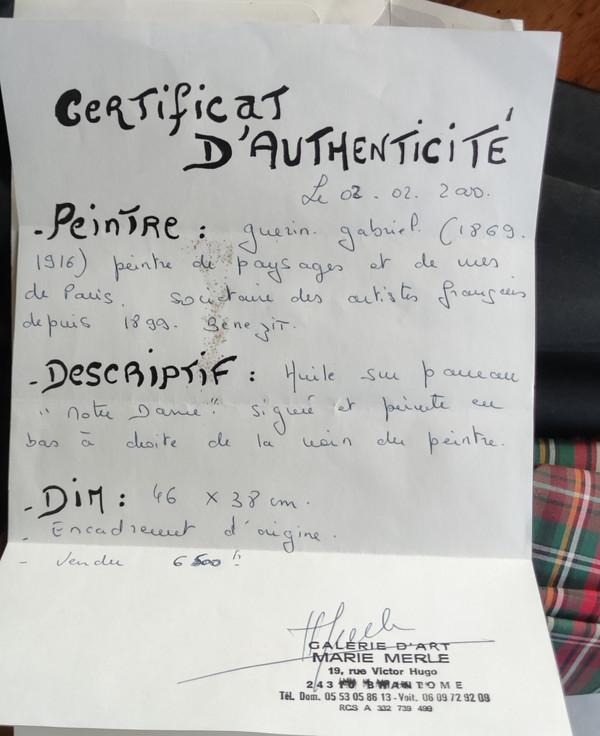 CERTIFICAT
D'AUTHENTICITÉ
Le 02. 02. 2000.
- PEINTRE : guerin. gabriel. (1869.
1916) peintre de paysages et de vues
de Paris. Societaire des artistes français
depuis 1899. Benezit.
- DESCRIPTIF : Huile sur panneau
" Notre Dame " signé et peinte en
bas à droite de la main du peintre.
- DIM : 46 x 38 cm.
- Encadrement d'origine.
- Vendu 6 500
GALERIE D'ART
MARIE MERLE
19, rue Victor Hugo
243 BRANTOME
Tél. Dom. 05 53 05 86 13 - Voit. 06 09 72 92 09
RCS A 332 739 499